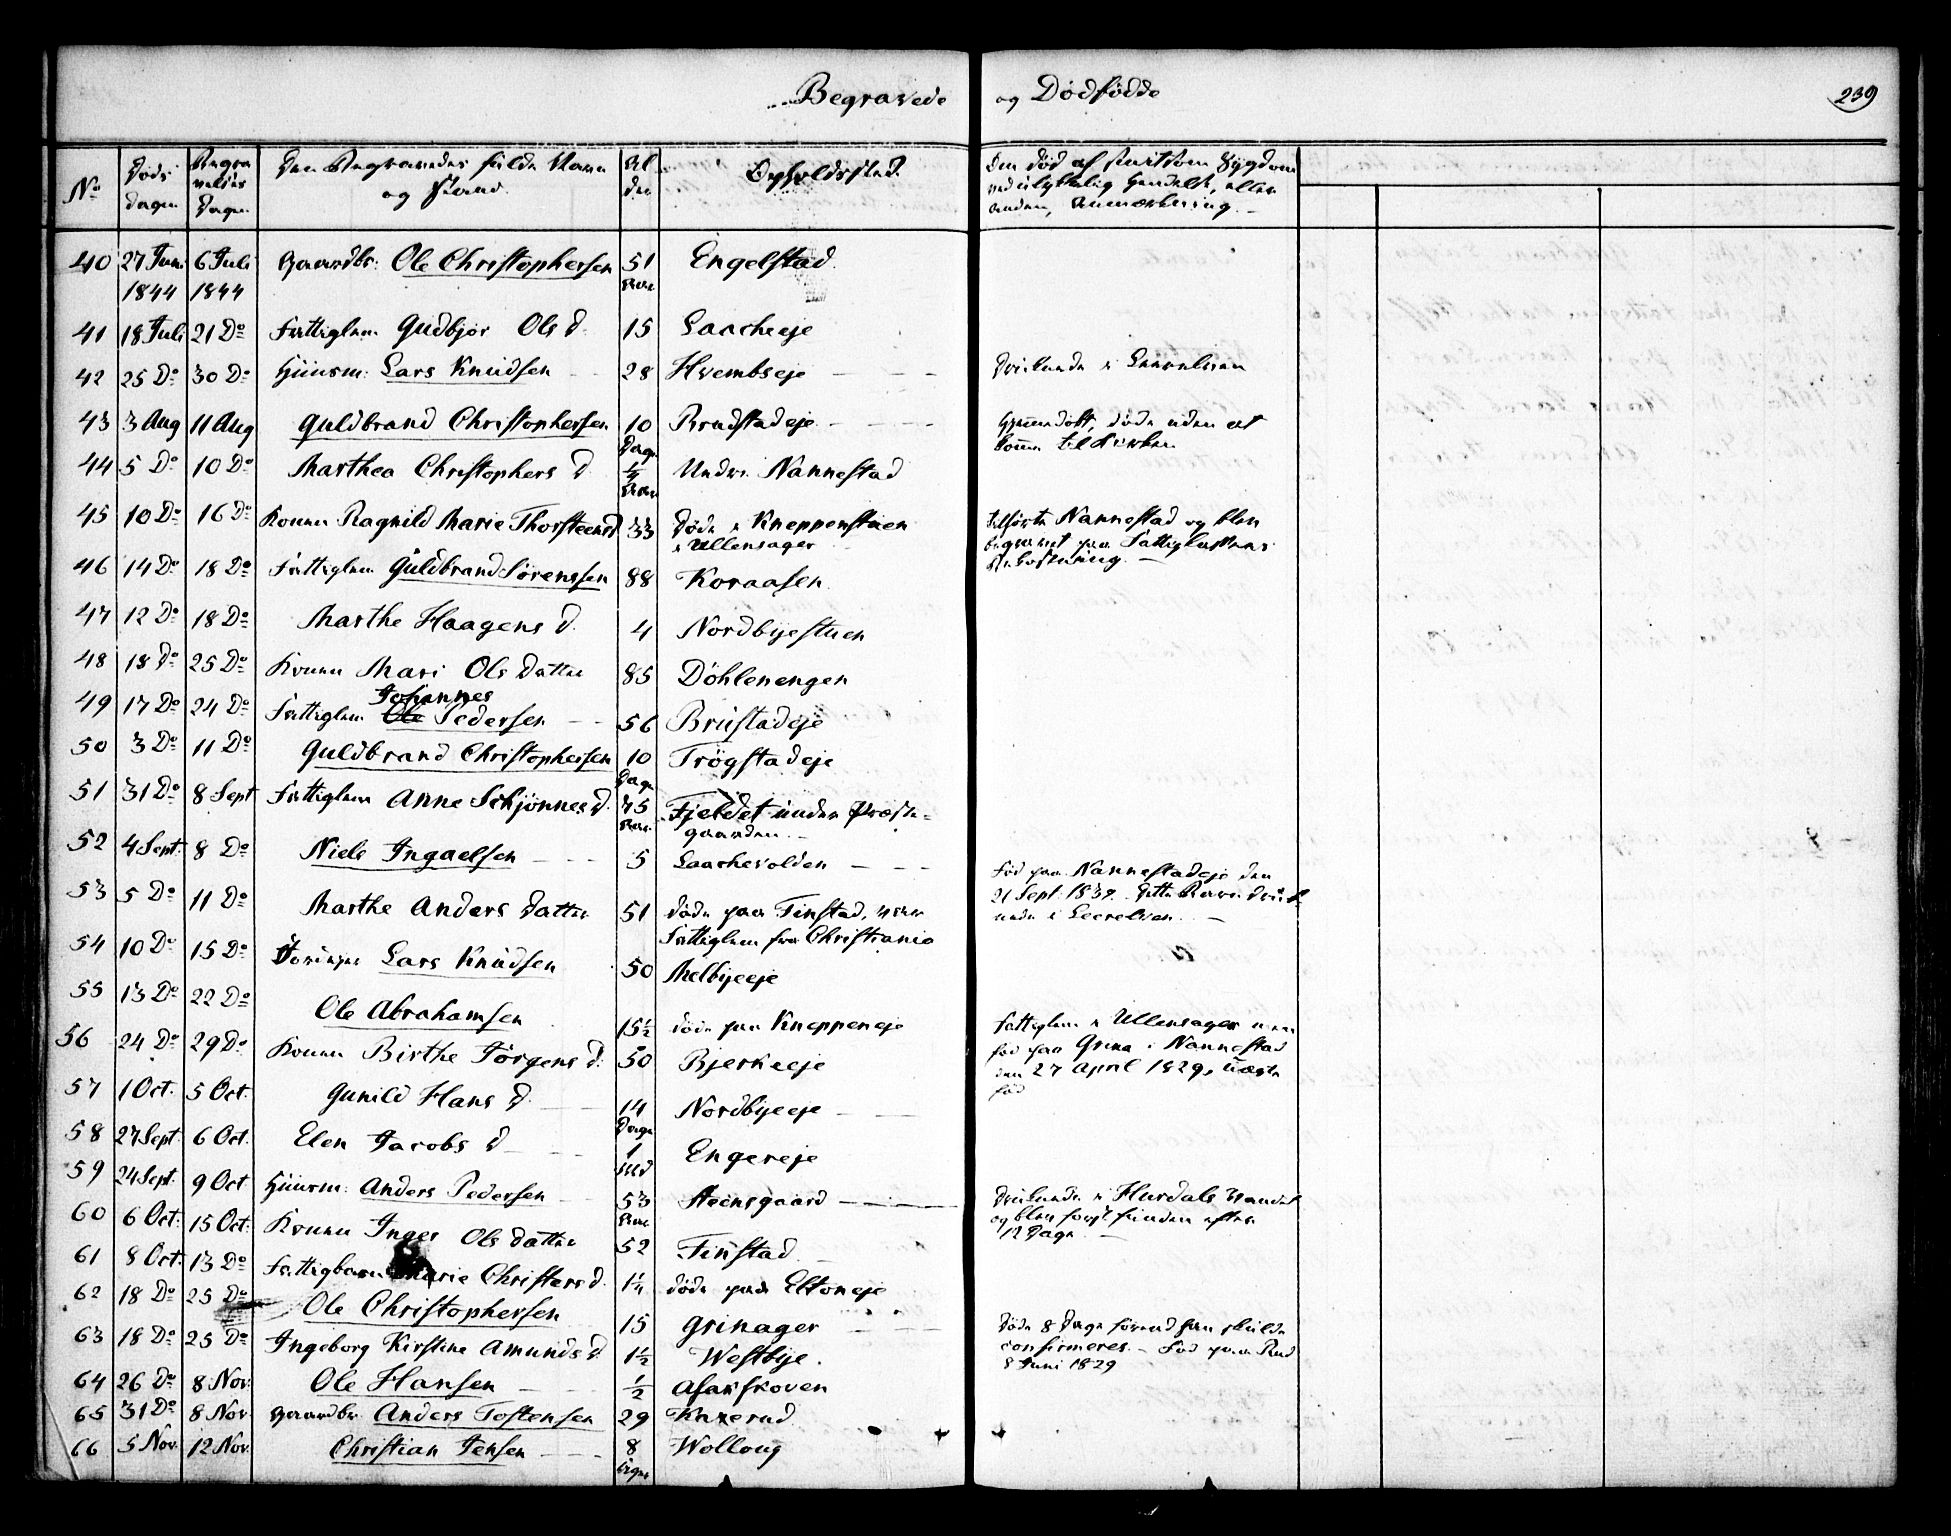 Begravede og Dødfødde
239
No Døds dagen Begravelses Dagen Den Begravedes fulde Navn og Stand. Alder Opholdssted. Om død af smitsom Sygdom ved ulykkelig Hændelse, eller anden Anmærkning.
40 27 Juni 1844 6 Juli 1844 Gaardbr: Ole Christophersen 51 Engelstad.
41 18 Juli 21 Do Fattiglem Gudbjør Ols d. 15 Laacheeje
42 25 Do 30 Do Huusm: Lars Knudsen 28 Hvembseje Druknede i
43 3 Aug 11 Aug Guldbrand Christophersen 10 Dage Rudstadeje Hjemmedøbt, døde uden at komme til Kirken
44 5 Do 10 Do Marthea Christophers d. 1/4 Nannestad
45 10 Do 16 Do Konen Ragnild Marie Thorsteensd 33 døde i Kneppenstuen i Ullensager tilførte Nannestad og blev begravet paa Fattigkassens Bekostning. –
46 14 Do 18 Do Fattiglem Guldbrand Sørenssen 88 Koraasen.
47 12 Do 18 Do Marthe Haagens d. 4 Nordbyestuen
48 18 Do 25 Do Konen Mari Ols datter 85 Døhlenengen
49 17 Do 24 Do Fattiglem Ole Johannes Pedersen 56 Brustadeje
50 3 Do 11 Do Guldbrand Christophersen 10 Dage Trøgstadeje
51 31 Do 8 Sept Fattiglem Anne Schjønnes d. 75 Fjeldet under Præstegaarden. –
52 4 Sept. 8 Do Niels Ingaelsen 5 Laachevolden Fød paa Nannestadeje den 21 Sept. 1839. Dette Barn druknede i Leerelven. –
53 5 Do 11 Do Marthe Anders datter 51 døde paa Finstad, var Fattiglem fra Christiania
54 10 Do 15 Do Lars Knudsen 50 Melbyeeje
55 13 Do 22 Do Ole Abrahamsen 15½ døde paa Kneppeneje Fattiglem i Ullensager men fød paa Grina i Nannestad den 27 April 1829, uægte fød
56 24 Do 29 Do Konen Birthe Jørgens d. 50 Bjerkeeje
57 1 Oct. 5 Oct. Gunild Hans d. 14 Dage Nordbyeeje
58 27 Sept. 6 Oct. Elen Jacobs d 1 Md Engereje
59 24 Sept. 9 Oct Huusm: Anders Pedersen 53 Steensgaard Druknede i Hurdals Vandet og blev først funden efter 12 Dage. –
60 6 Oct. 15 Oct. Konen Inger Ols datter 52 Finstad
61 8 Oct. 13 Do Fattigbarn Marie Christens d. 1¼ døde paa Eltoneje
62 18 Do 25 Do Ole Christophersen 15 Grinager Døde 8 Dage førend han skulde confirmeres. – Fød paa Rud 8 Juni 1829
63 18 Do 25 Do Ingeborg Kirstine Amunds d. 1½ Westbye.
64 26 Do 8 Nov. Ole Hansen ½ Asakskoven
65 31 Do 8 Nov Gaardbr Anders Tostensen 29 Kaxerud
66 5 Nov. 12 Nov. Christian Jensen 8 Uger Wolloug